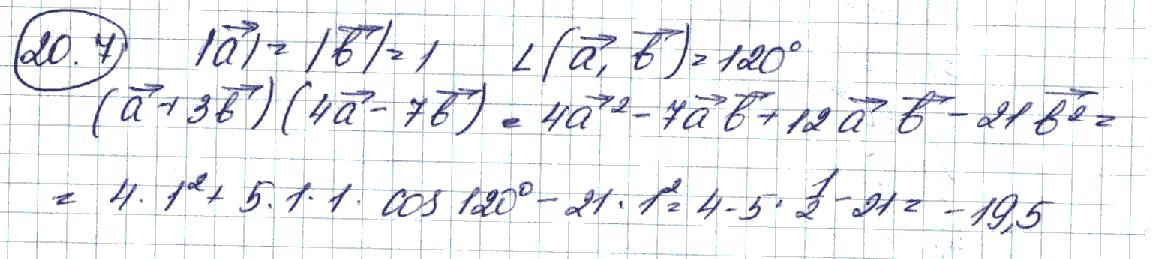 20.7) |a⃗| = |b⃗| = 1 ∠(a⃗, b⃗) = 120°
(a⃗ + 3b⃗)(4a⃗ - 7b⃗) = 4a⃗² - 7a⃗ b⃗ + 12a⃗ b⃗ - 21b⃗² =
= 4·1² + 5·1·1· cos 120° - 21·1² = 4 - 5· 1/2 - 21 = -19,5